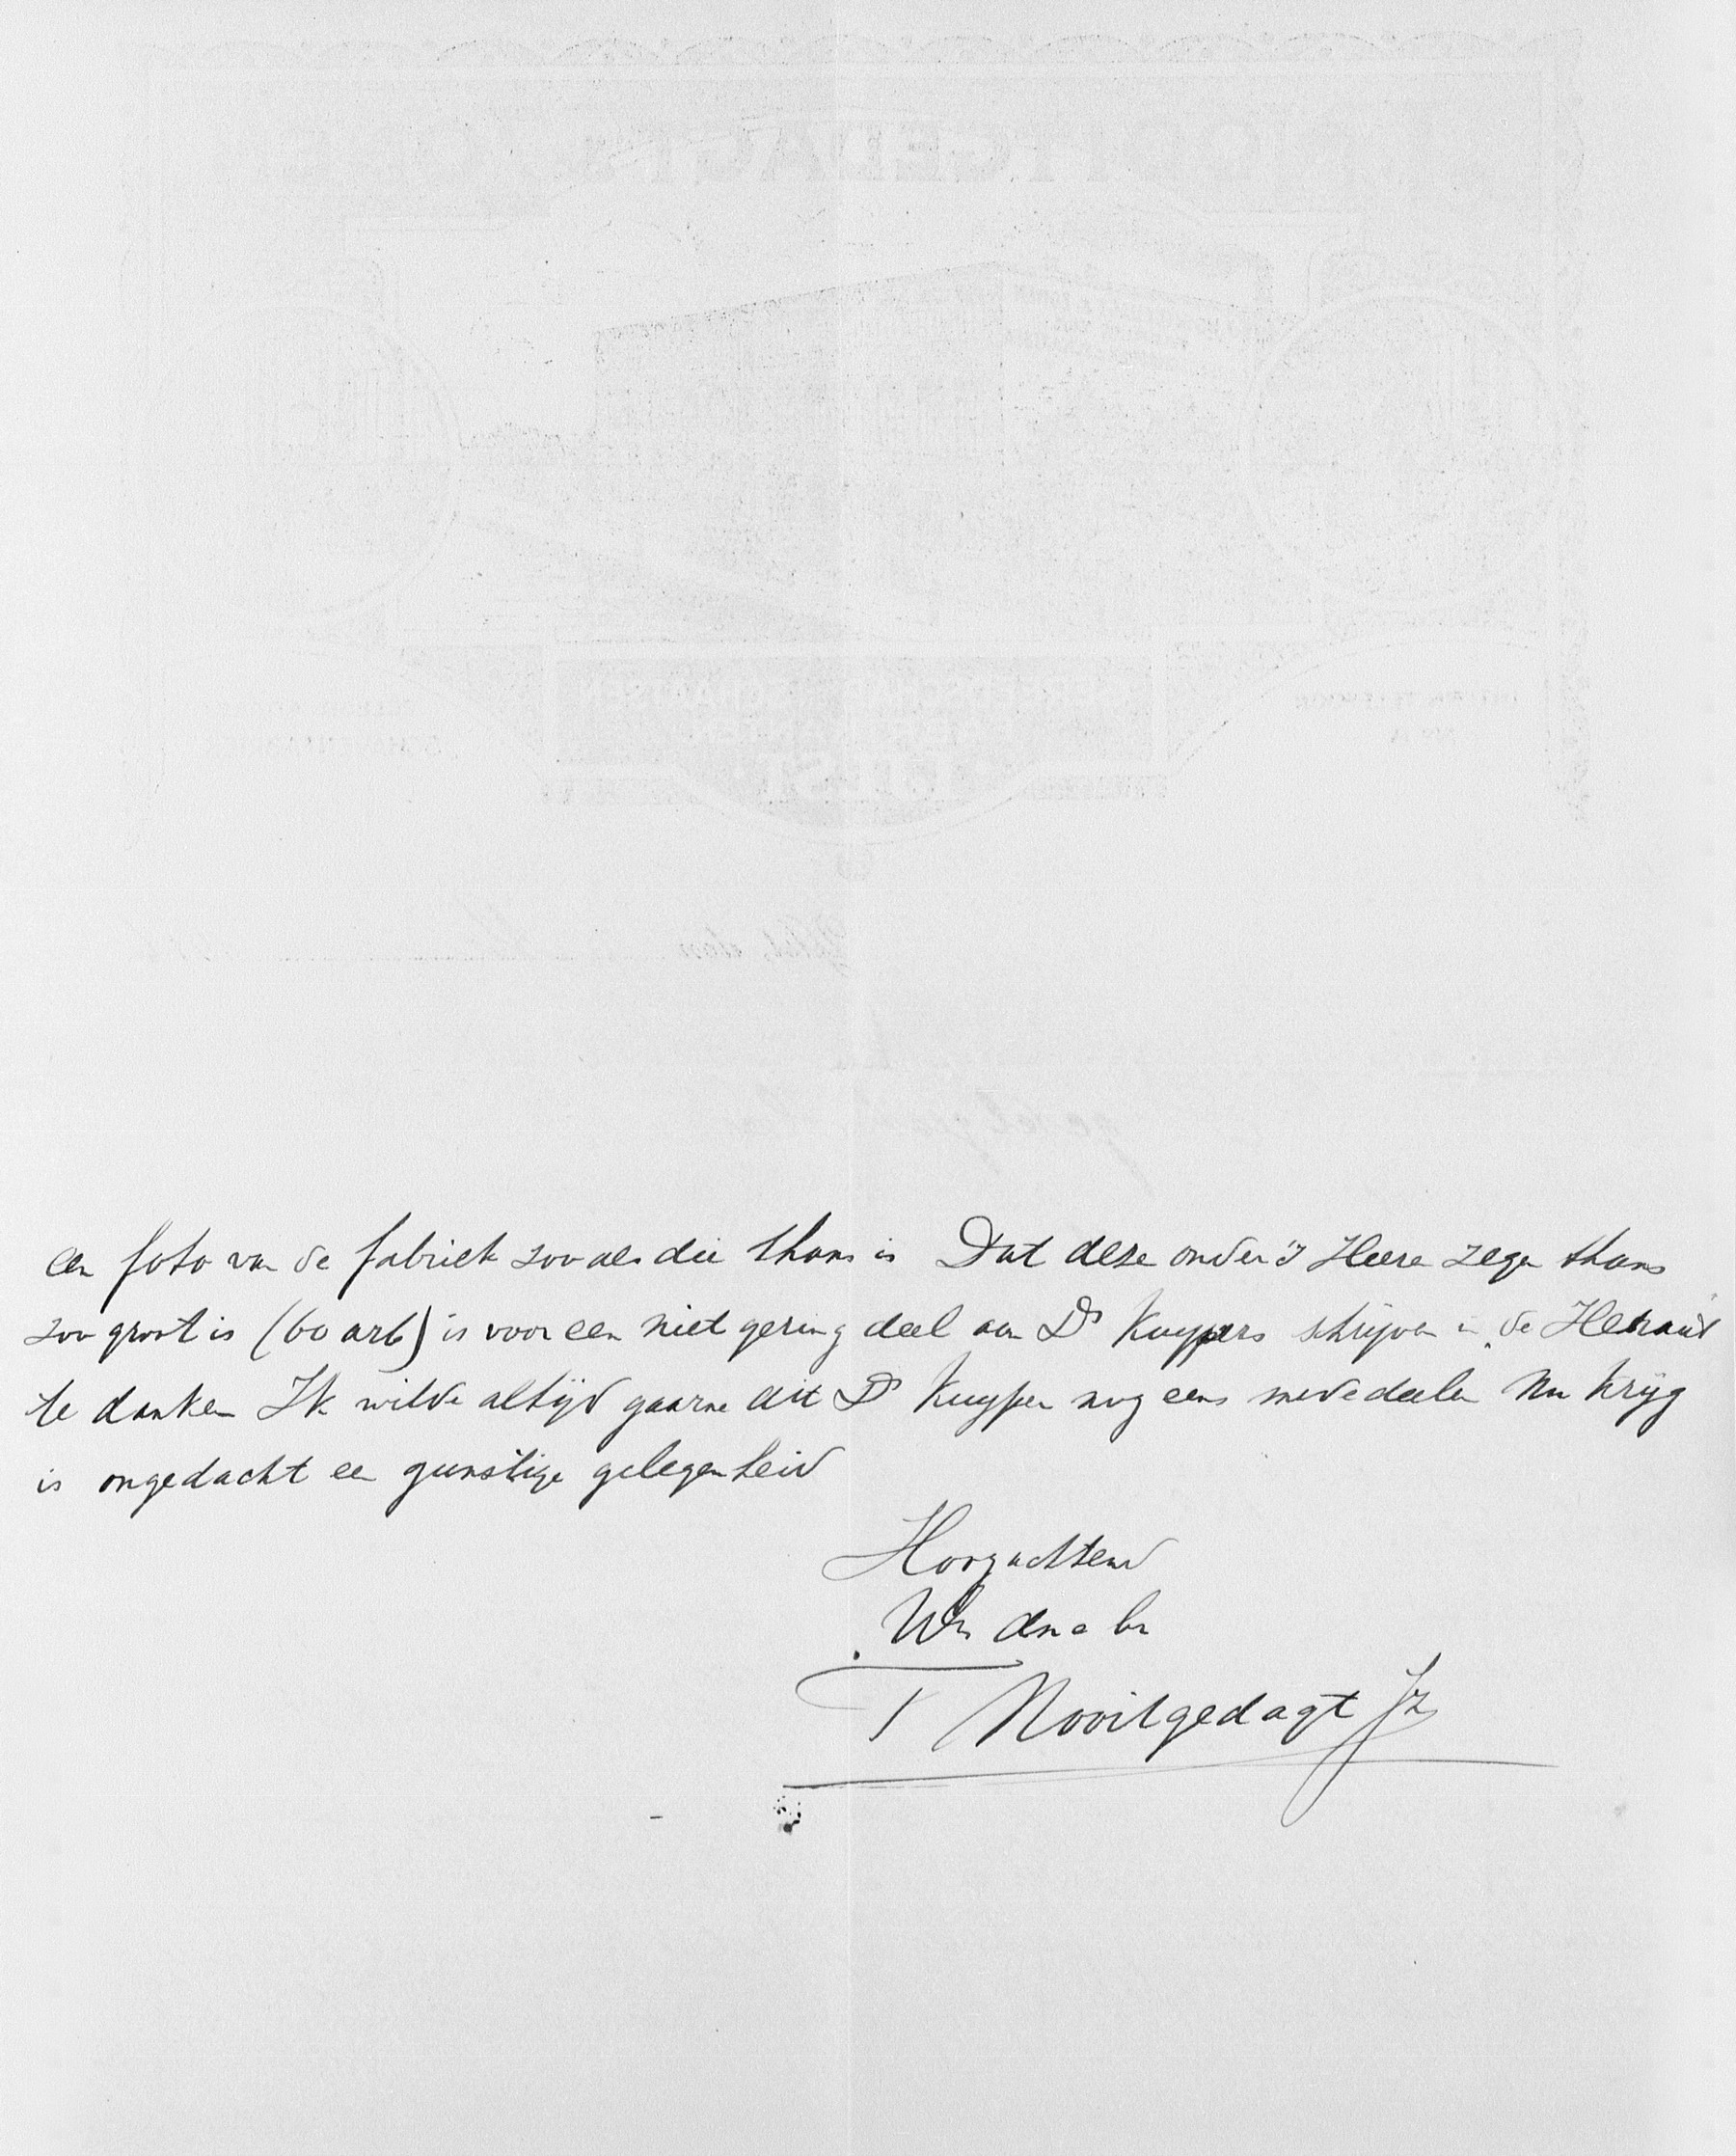 een foto van de fabriek zooals die thans is Dat deze onder 's Heere zegen thans
zoo groot is (60 arb) is voor een niet gering deel aan Ds Kuypers schrijven in "de Heraut"
te danken Ik wilde altijd gaarne dit Ds Kuyper nog eens mededeelen Nu krijg
is ongedacht een gunstige gelegenheid
Hoogachtend
Uw dnr
T Nooitgedagt Jz